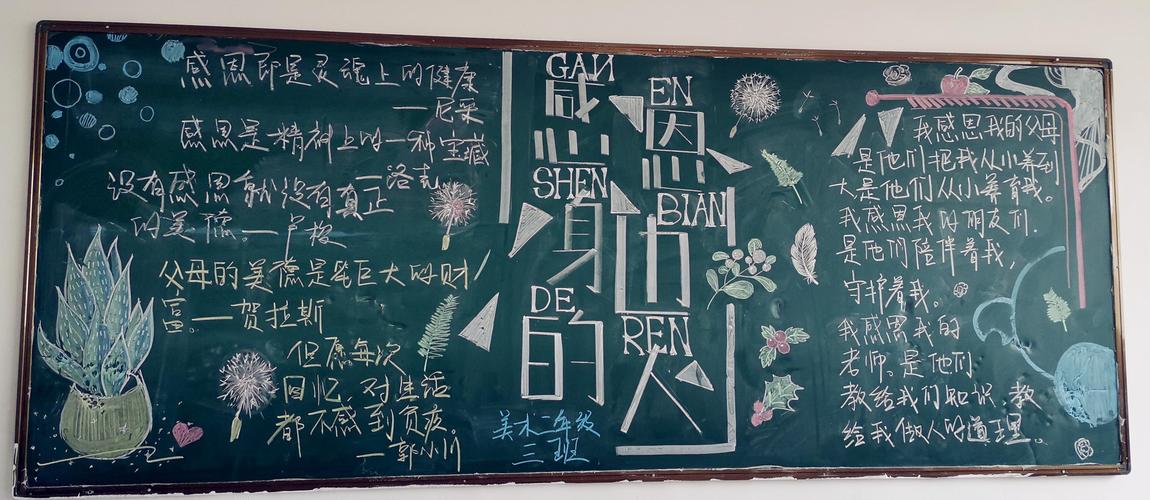 感恩即是灵魂上的健康
—尼采
感恩是精神上的一种宝藏
—洛克
没有感恩就没有真正
的美德。—卢梭
父母的美德是笔巨大的财
富。—贺拉斯
但愿每次
回忆,对生活
都不感到负疚。
—郭小川
GAN
感
EN
恩
SHEN
身
BIAN
边
DE
的
REN
人
美术二年级
三班
我感恩我的父母
是他们把我从小养到
大是他们从小养育我。
我感恩我的朋友们.
是他们陪伴着我,
守护着我。
我感恩我的
老师。是他们
教给我们知识、教
给我做人的道理。